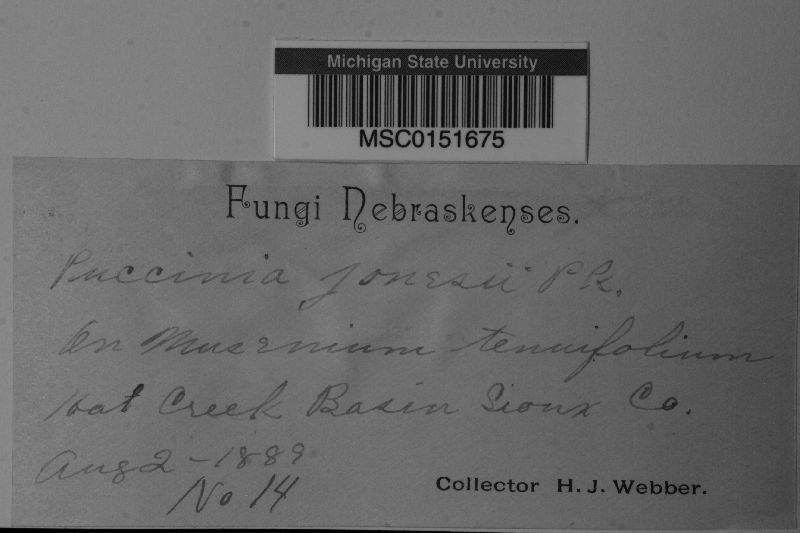 Michigan State University
MSC0151675
Fungi Nebraskenses.
Puccinia Jonesii Pk.
On Musenium tenuifolium
Hat Creek Basin Sioux Co.
Aug 2 - 1889
No 14
Collector H. J. Webber.